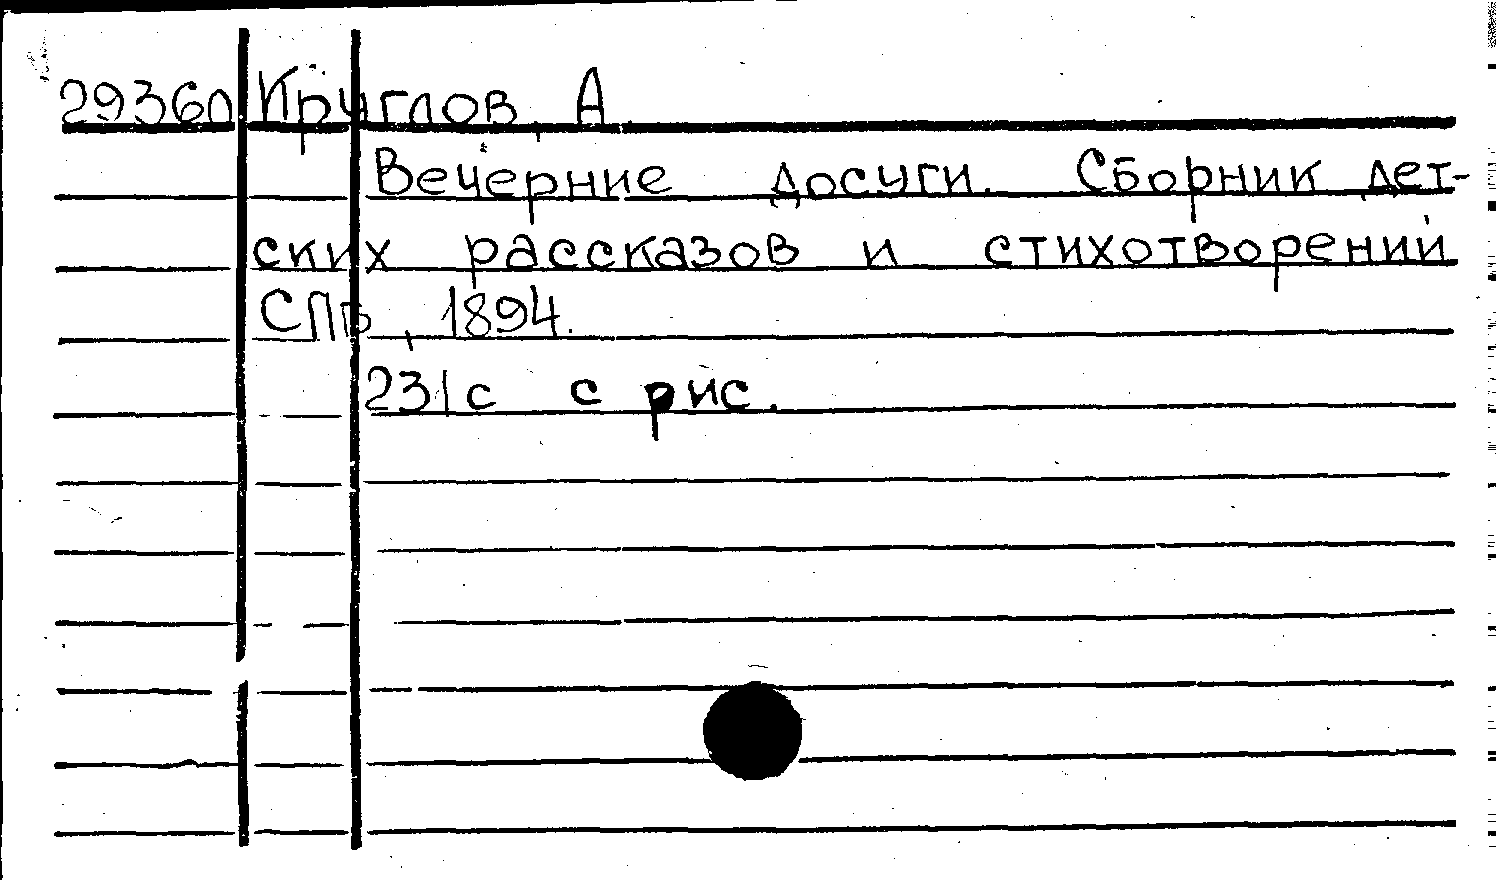 29360 Круглов, А.
Вечерние досуги. Сборник дет-
ских рассказов и стихотворений
СПб, 1894.
231с с рис.